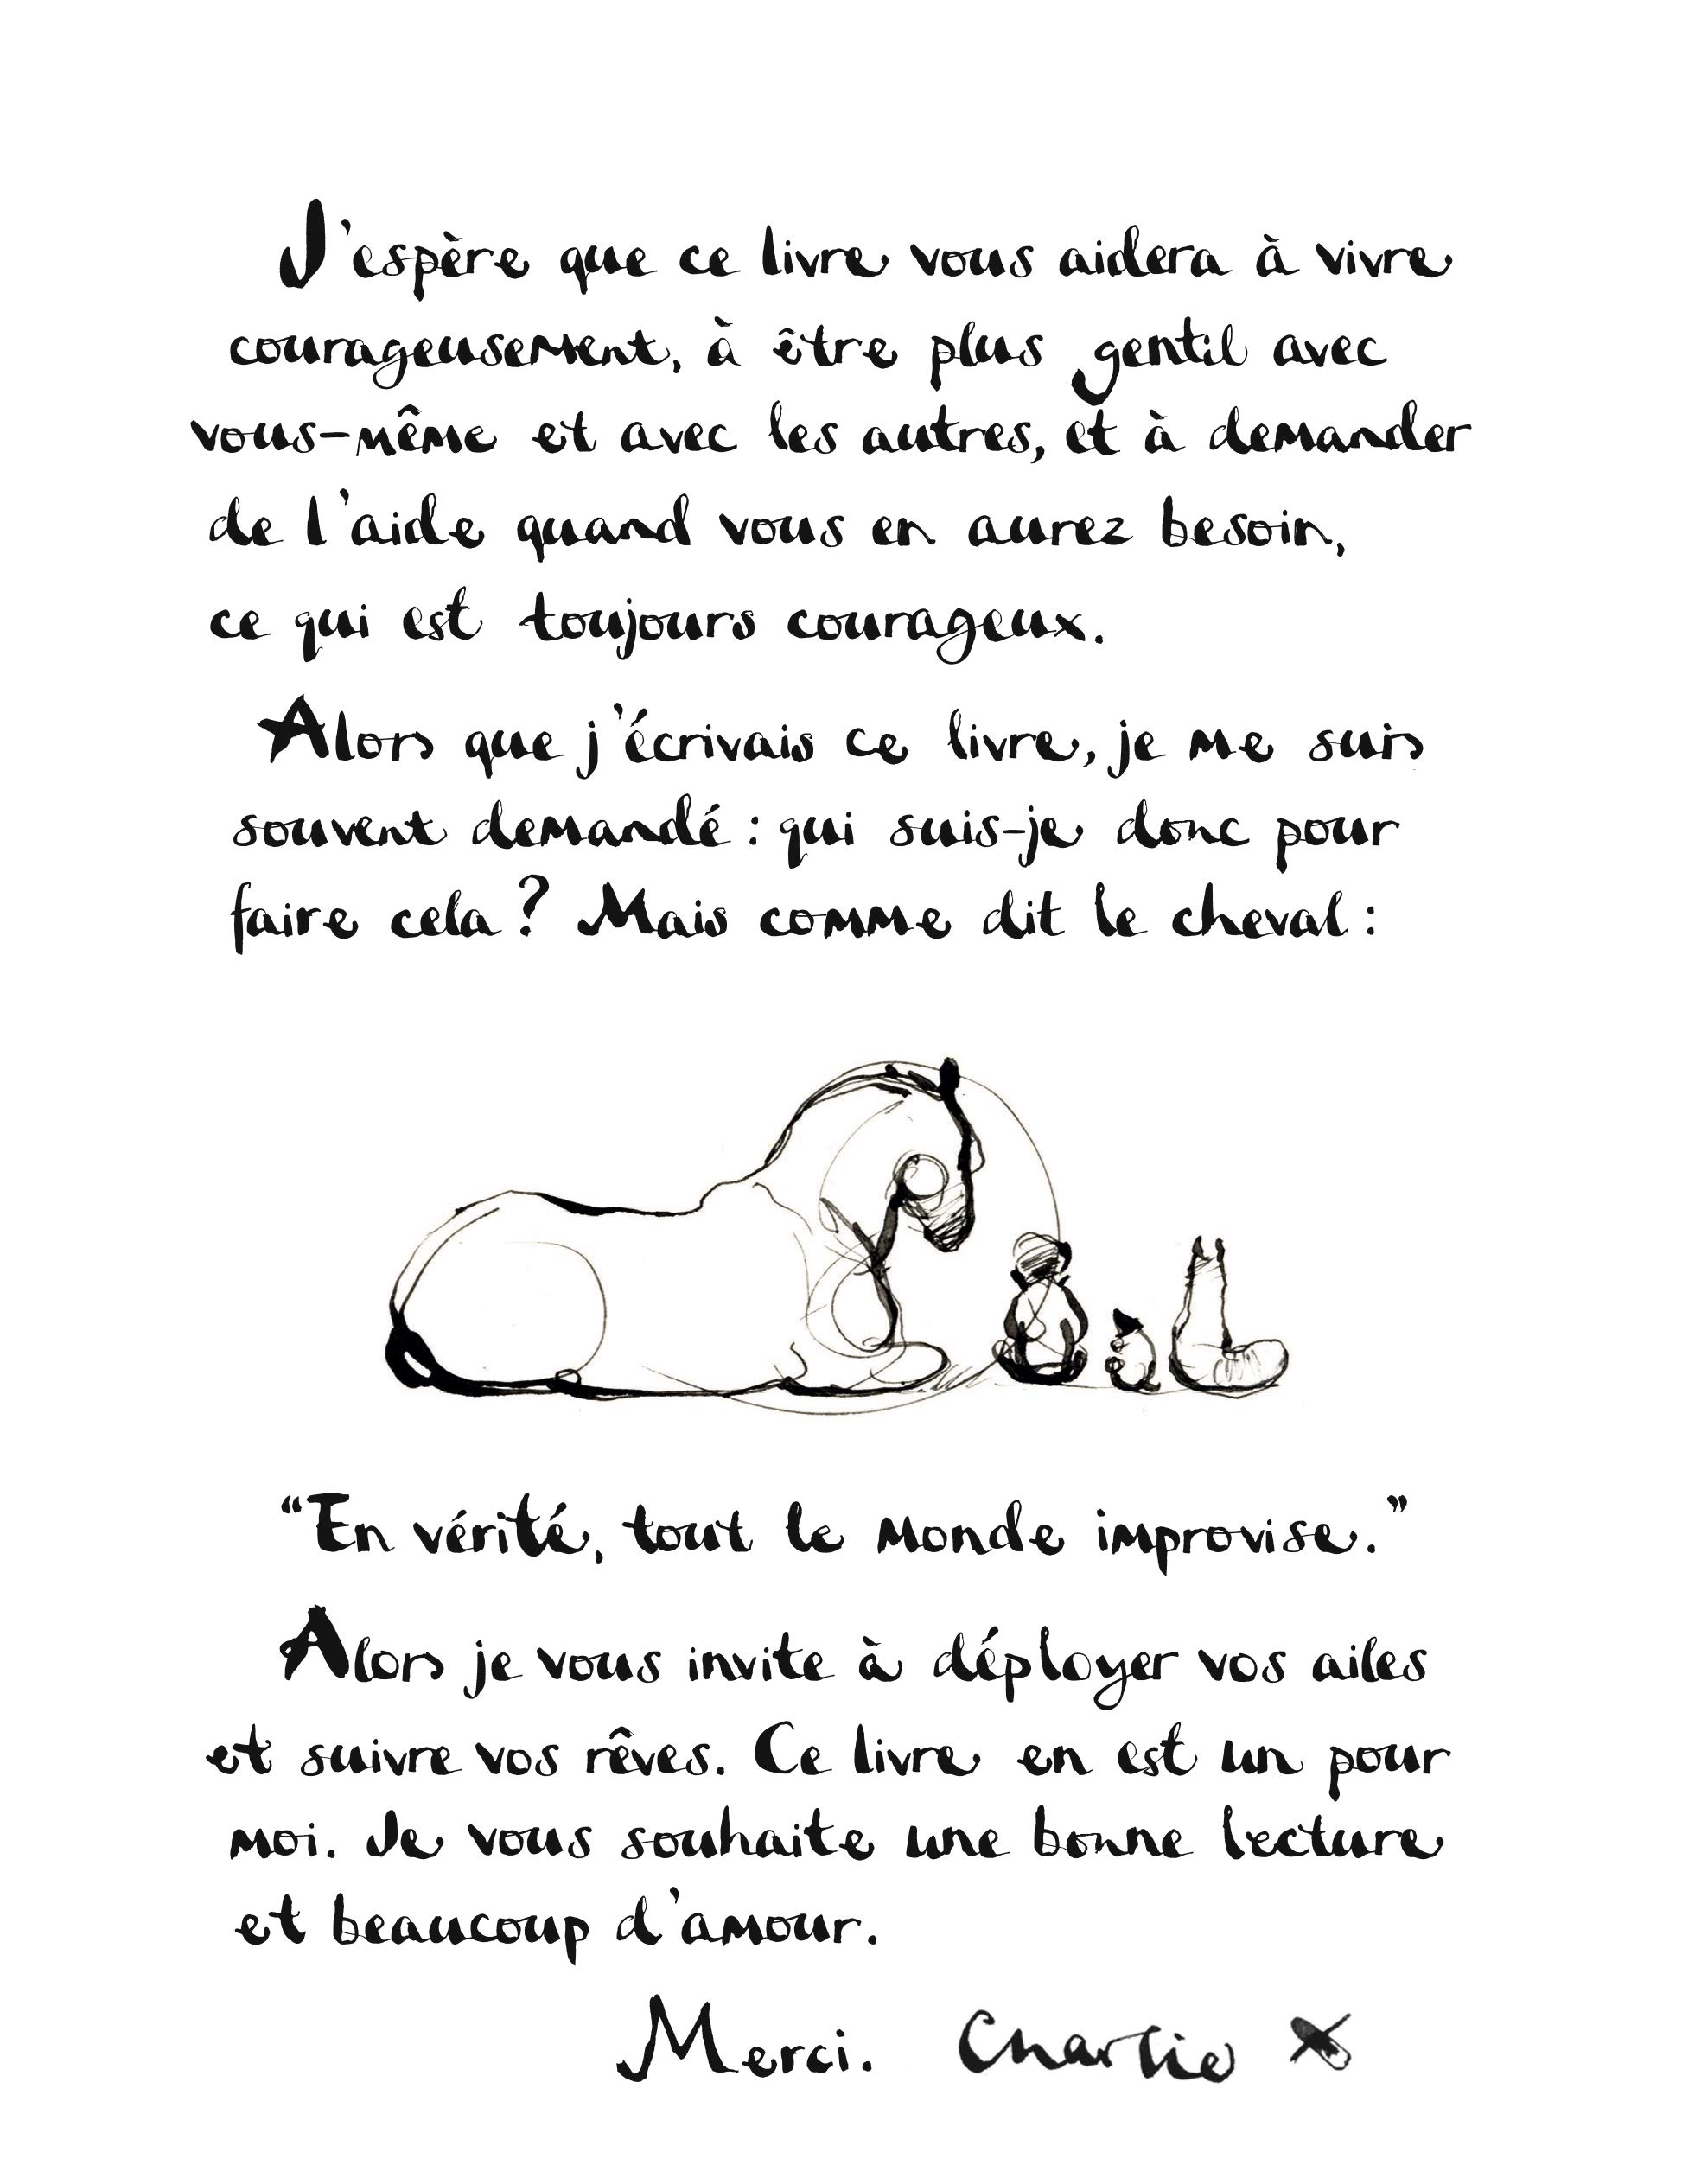 J'espère que ce livre vous aidera à vivre
courageusement, à être plus gentil avec
vous-même et avec les autres, et à demander
de l'aide quand vous en aurez besoin,
ce qui est toujours courageux.
Alors que j'écrivais ce livre, je me suis
souvent demandé : qui suis-je donc pour
faire cela ? Mais comme dit le cheval :
“En vérité, tout le monde improvise.”
Alors je vous invite à déployer vos ailes
et suivre vos rêves. Ce livre en est un pour
moi. Je vous souhaite une bonne lecture
et beaucoup d'amour.
Merci. Charlie x